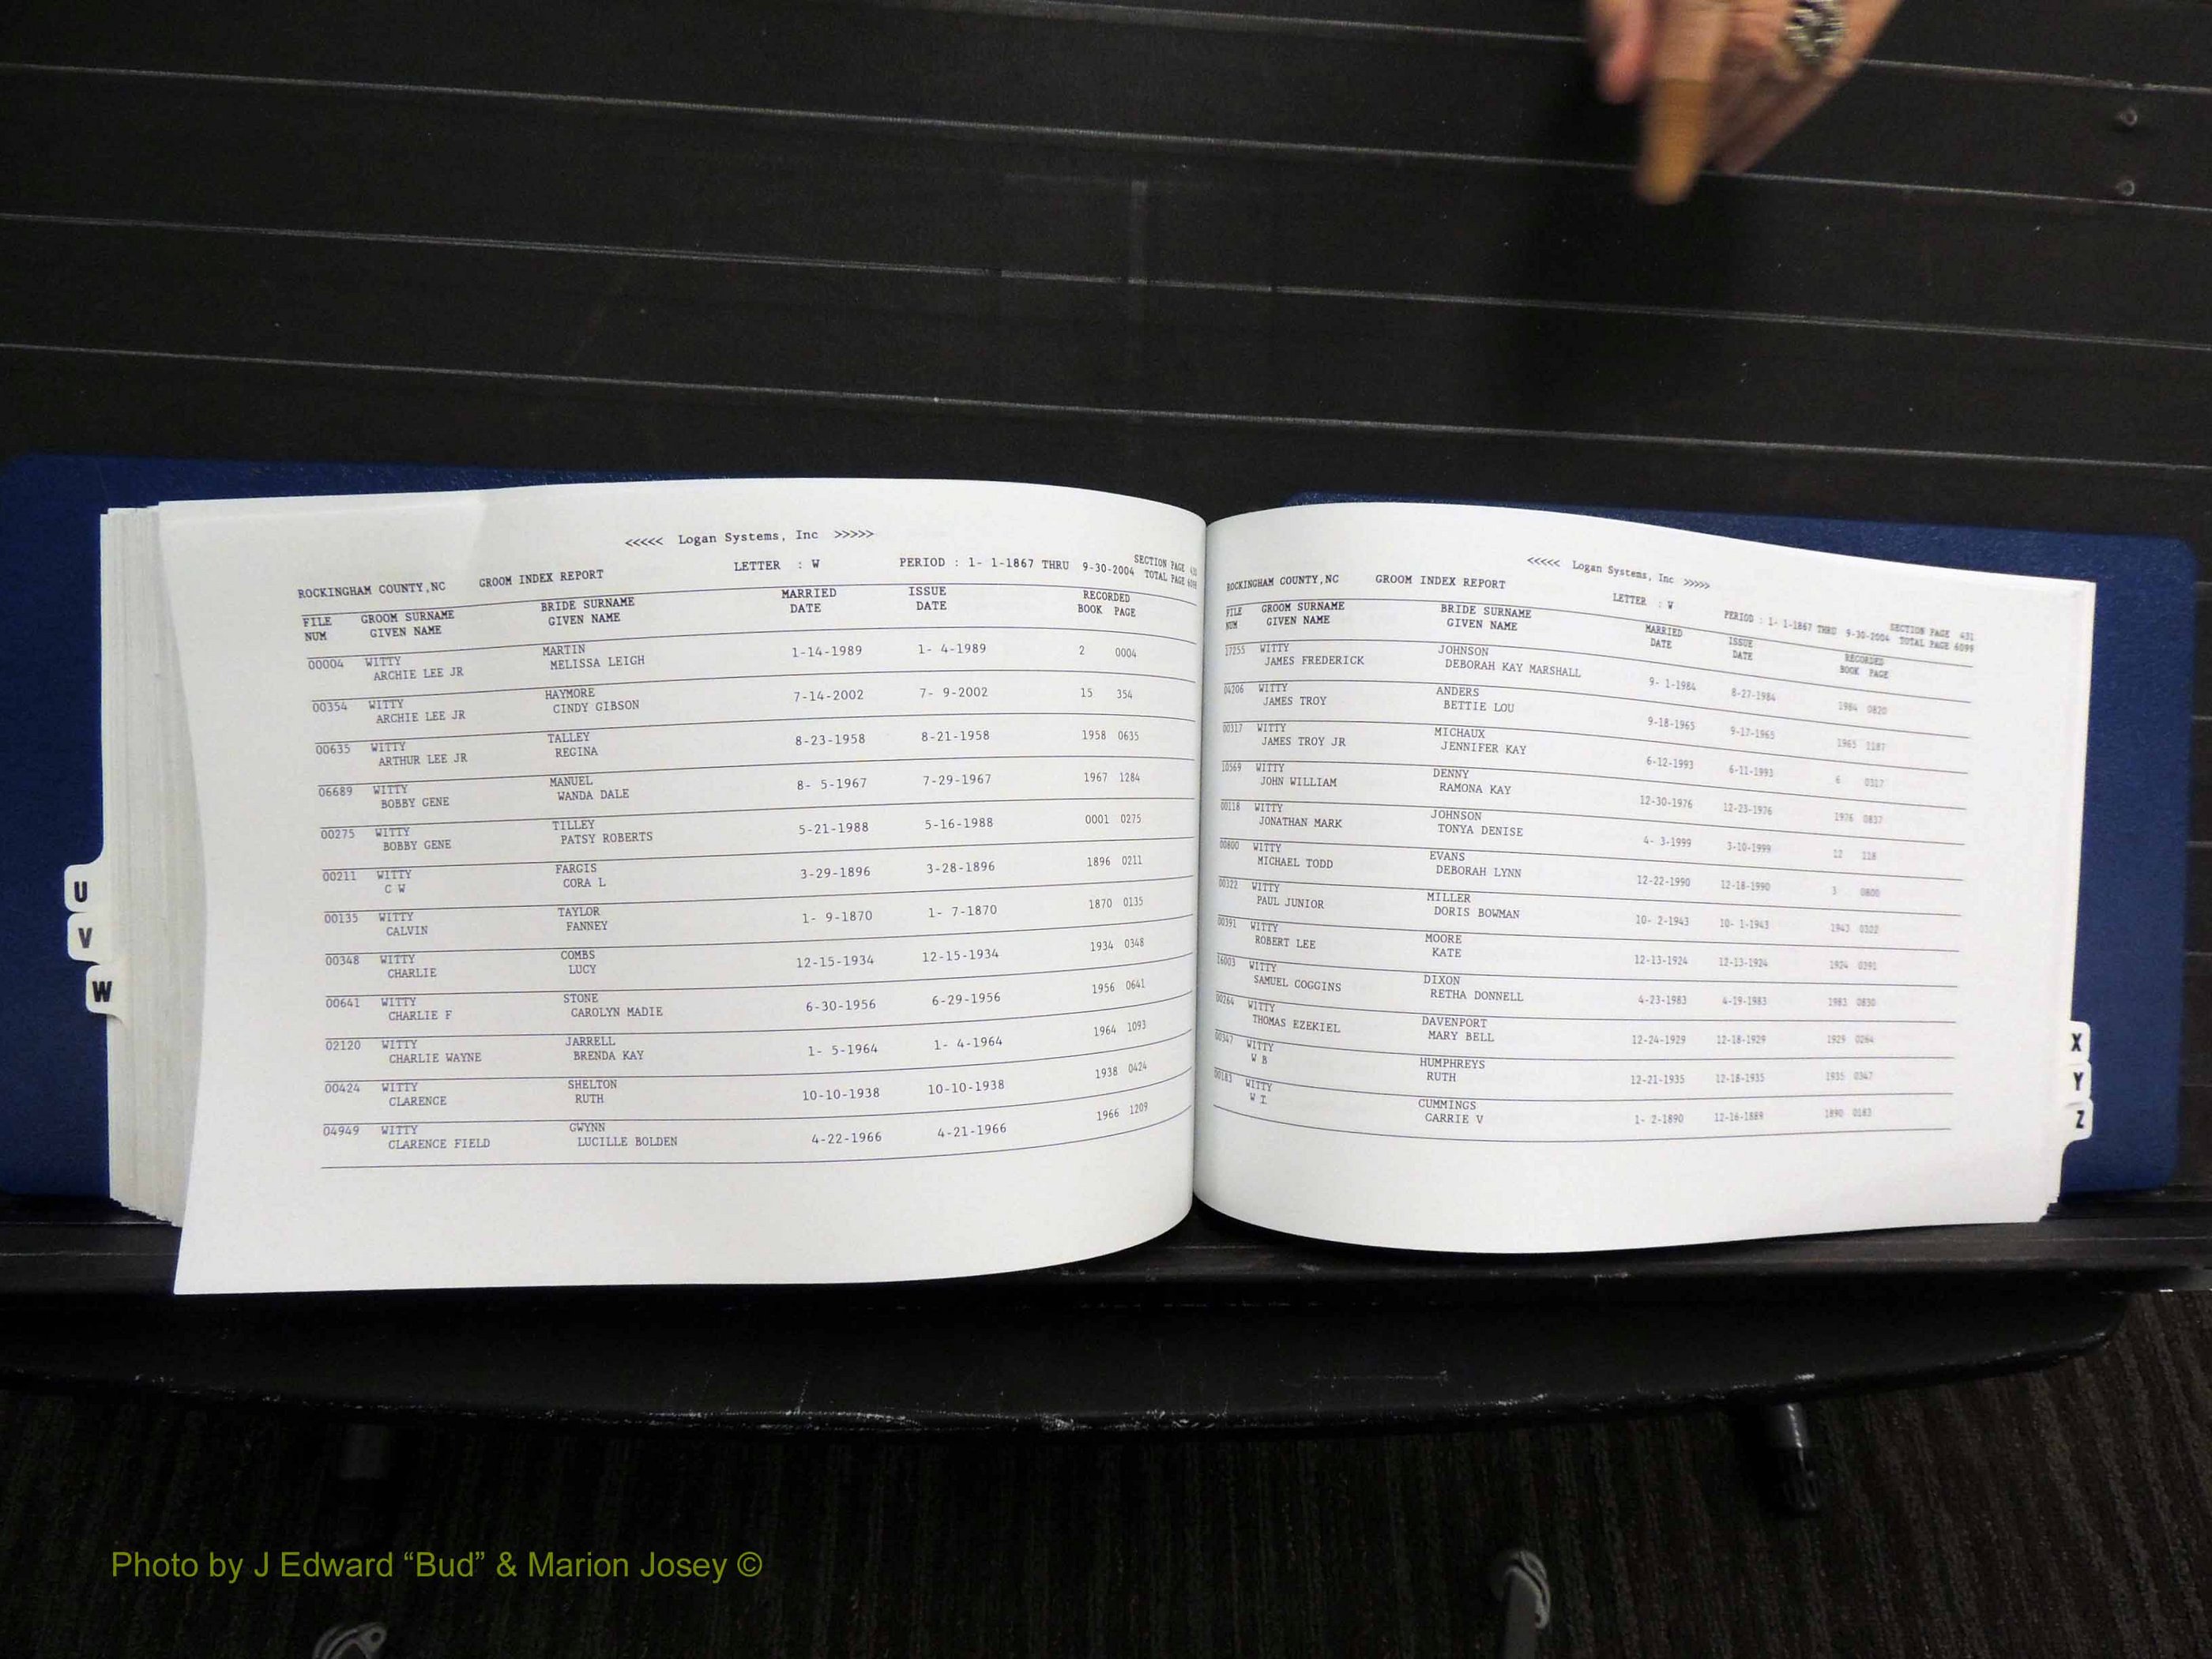 <<<<< Logan Systems, Inc >>>>>
ROCKINGHAM COUNTY,NC GROOM INDEX REPORT LETTER : W PERIOD : 1- 1-1867 THRU 9-30-2004 SECTION PAGE
TOTAL PAGE
FILE GROOM SURNAME BRIDE SURNAME MARRIED ISSUE RECORDED
NUM GIVEN NAME GIVEN NAME DATE DATE BOOK PAGE
00004 WITTY MARTIN 1-14-1989 1- 4-1989 2 0004
ARCHIE LEE JR MELISSA LEIGH
00354 WITTY HAYMORE 7-14-2002 7- 9-2002 15 354
ARCHIE LEE JR CINDY GIBSON
00635 WITTY TALLEY 8-23-1958 8-21-1958 1958 0635
ARTHUR LEE JR REGINA
06689 WITTY MANUEL 8- 5-1967 7-29-1967 1967 1284
BOBBY GENE WANDA DALE
00275 WITTY TILLEY 5-21-1988 5-16-1988 0001 0275
BOBBY GENE PATSY ROBERTS
00211 WITTY FARGIS 3-29-1896 3-28-1896 1896 0211
C W CORA L
00135 WITTY TAYLOR 1- 9-1870 1- 7-1870 1870 0135
CALVIN FANNEY
00348 WITTY COMBS 12-15-1934 12-15-1934 1934 0348
CHARLIE LUCY
00641 WITTY STONE 6-30-1956 6-29-1956 1956 0641
CHARLIE F CAROLYN MADIE
02120 WITTY JARRELL 1- 5-1964 1- 4-1964 1964 1093
CHARLIE WAYNE BRENDA KAY
00424 WITTY SHELTON 10-10-1938 10-10-1938 1938 0424
CLARENCE RUTH
04949 WITTY GWYNN 4-22-1966 4-21-1966 1966 1209
CLARENCE FIELD LUCILLE BOLDEN
U
V
W
<<<<< Logan Systems, Inc >>>>>
ROCKINGHAM COUNTY,NC GROOM INDEX REPORT LETTER : W PERIOD : 1- 1-1867 THRU 9-30-2004 SECTION PAGE 431
TOTAL PAGE 6099
FILE GROOM SURNAME BRIDE SURNAME MARRIED ISSUE RECORDED
NUM GIVEN NAME GIVEN NAME DATE DATE BOOK PAGE
17255 WITTY JOHNSON 9- 1-1984 8-27-1984 1984 0820
JAMES FREDERICK DEBORAH KAY MARSHALL
04206 WITTY ANDERS 9-18-1965 9-17-1965 1965 1187
JAMES TROY BETTIE LOU
00317 WITTY MICHAUX 6-12-1993 6-11-1993 6 0317
JAMES TROY JR JENNIFER KAY
10569 WITTY DENNY 12-30-1976 12-23-1976 1976 0837
JOHN WILLIAM RAMONA KAY
00118 WITTY JOHNSON 4- 3-1999 3-10-1999 12 118
JONATHAN MARK TONYA DENISE
00800 WITTY EVANS 12-22-1990 12-18-1990 3 0800
MICHAEL TODD DEBORAH LYNN
00322 WITTY MILLER 10- 2-1943 10- 1-1943 1943 0322
PAUL JUNIOR DORIS BOWMAN
00391 WITTY MOORE 12-13-1924 12-13-1924 1924 0391
ROBERT LEE KATE
16003 WITTY DIXON 4-23-1983 4-19-1983 1983 0830
SAMUEL COGGINS RETHA DONNELL
00264 WITTY DAVENPORT 12-24-1929 12-18-1929 1929 0264
THOMAS EZEKIEL MARY BELL
00347 WITTY HUMPHREYS 12-21-1935 12-18-1935 1935 0347
W B RUTH
00183 WITTY CUMMINGS 1- 2-1890 12-16-1889 1890 0183
W I CARRIE V
X
Y
Z
Photo by J Edward “Bud” & Marion Josey ©